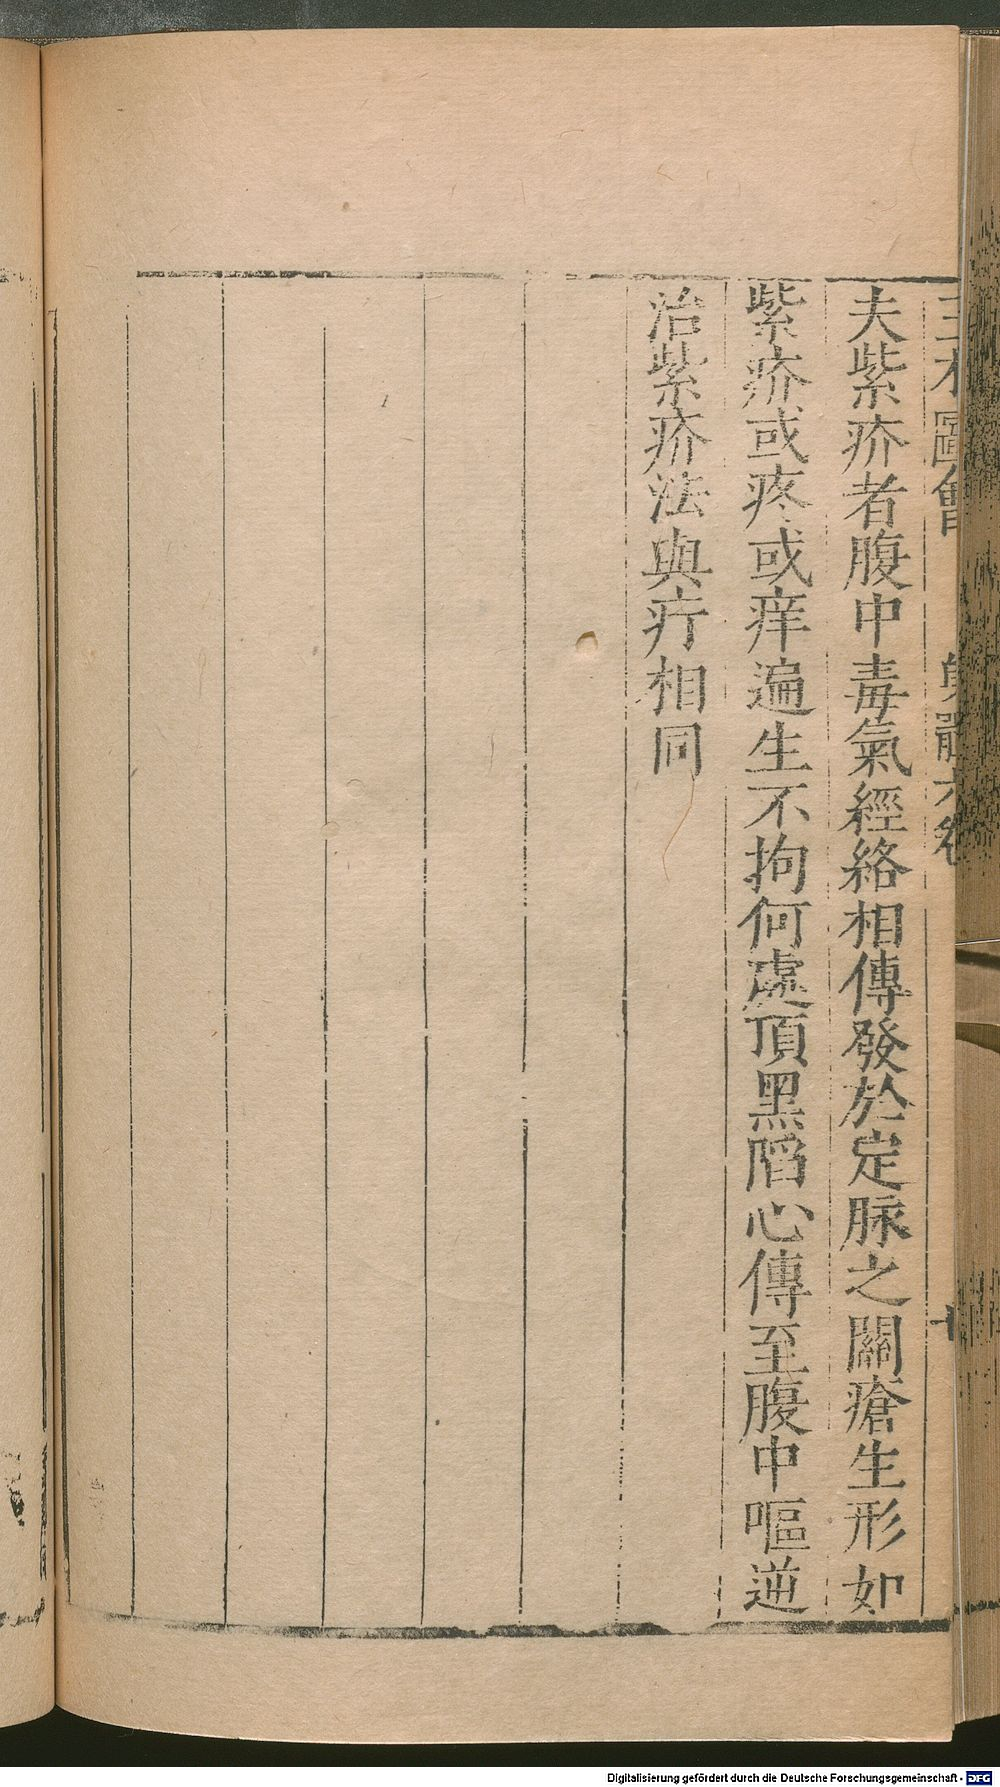 三才圖會 身體六卷 十
夫紫疥者腹中毒氣經絡相傳發於定脉之關瘡生形如
紫疥或疼或痒遍生不拘何處頂黑陷心傳至腹中嘔逆
治紫疥法與疔相同
Digitalisierung gefördert durch die Deutsche Forschungsgemeinschaft - DFG